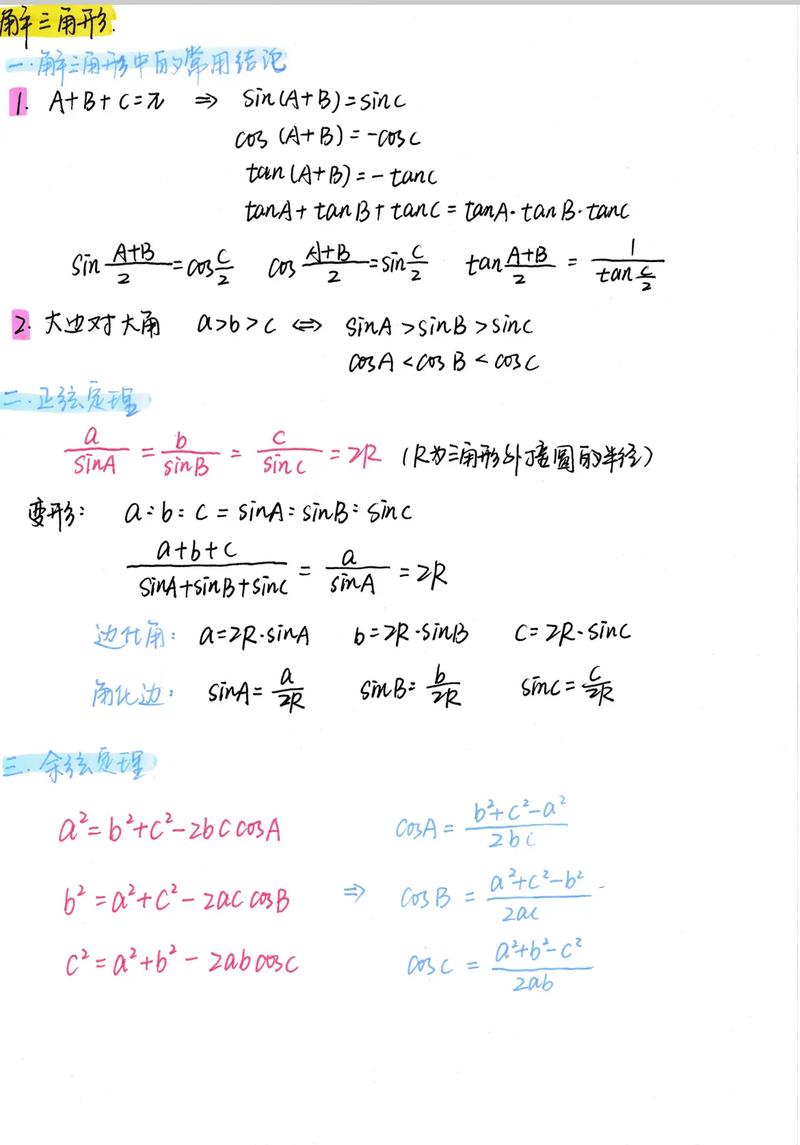 解三角形.
一.解三角形中的常用结论
1. A+B+C=π ⇒ sin(A+B)=sinC
cos(A+B)=-cosC
tan(A+B)=-tanC
tanA+tanB+tanC=tanA·tanB·tanC
sin(A+B)/2=cos C/2 cos(A+B)/2=sin C/2 tan(A+B)/2=1/(tan C/2)
2. 大边对大角 a>b>c ⇔ sinA>sinB>sinC
cosA<cosB<cosC
二.正弦定理
a/sinA=b/sinB=c/sinC=2R (R为三角形外接圆的半径)
变形: a:b:c=sinA:sinB:sinC
(a+b+c)/(sinA+sinB+sinC)=a/sinA=2R
边化角: a=2R·sinA b=2R·sinB c=2R·sinC
角化边: sinA=a/2R sinB=b/2R sinC=c/2R
三.余弦定理
a²=b²+c²-2bccosA cosA=(b²+c²-a²)/2bc
b²=a²+c²-2accosB ⇒ cosB=(a²+c²-b²)/2ac
c²=a²+b²-2abcosC cosC=(a²+b²-c²)/2ab